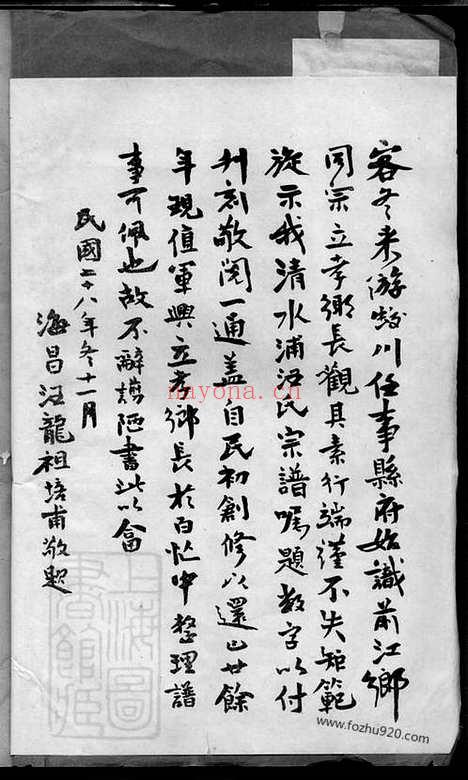 客冬来游蛟川任事縣府始識前江鄉
同宗立孝鄉長觀其素行端謹不失矩範
旋示我清水浦汪氏宗譜囑題数字以付
刊刻敬閱一通盖自民初創修以還已廿餘
年現值軍興立孝鄉長於百忙中整理譜
事可佩也故不辭譾陋書此以畣
民國二十八年冬十一月
海昌汪龍祖培甫敬题
上海圖
書館
nayona.cn
www.fozhu920.com